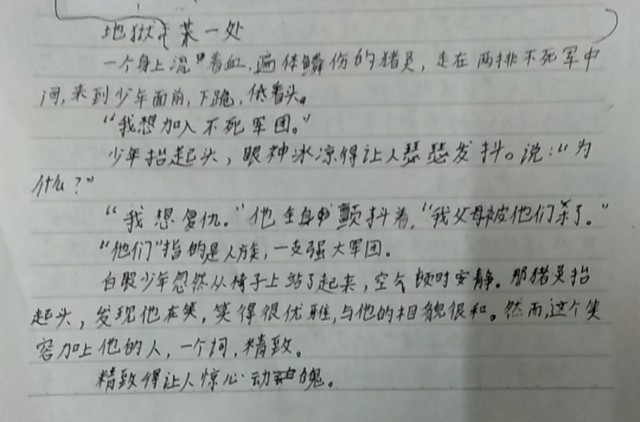 地狱某一处
一个身上流着血,遍体鳞伤的猪灵,走在两排不死军中
间,来到少年面前,下跪,低着头。
“我想加入不死军团。”
少年抬起头,眼神冰凉得让人瑟瑟发抖。说:“为
什么?”
“我想复仇。”他全身颤抖着,“我父母被他们杀了。”
“他们”指的是人族,一支强大军团。
白眼少年忽然从椅子上站了起来,空气顿时安静。那猪灵抬
起头,发现他在笑,笑得很优雅,与他的相貌很和。然而,这个笑
容加上他的人,一个词,精致。
精致得让人惊心动魄。